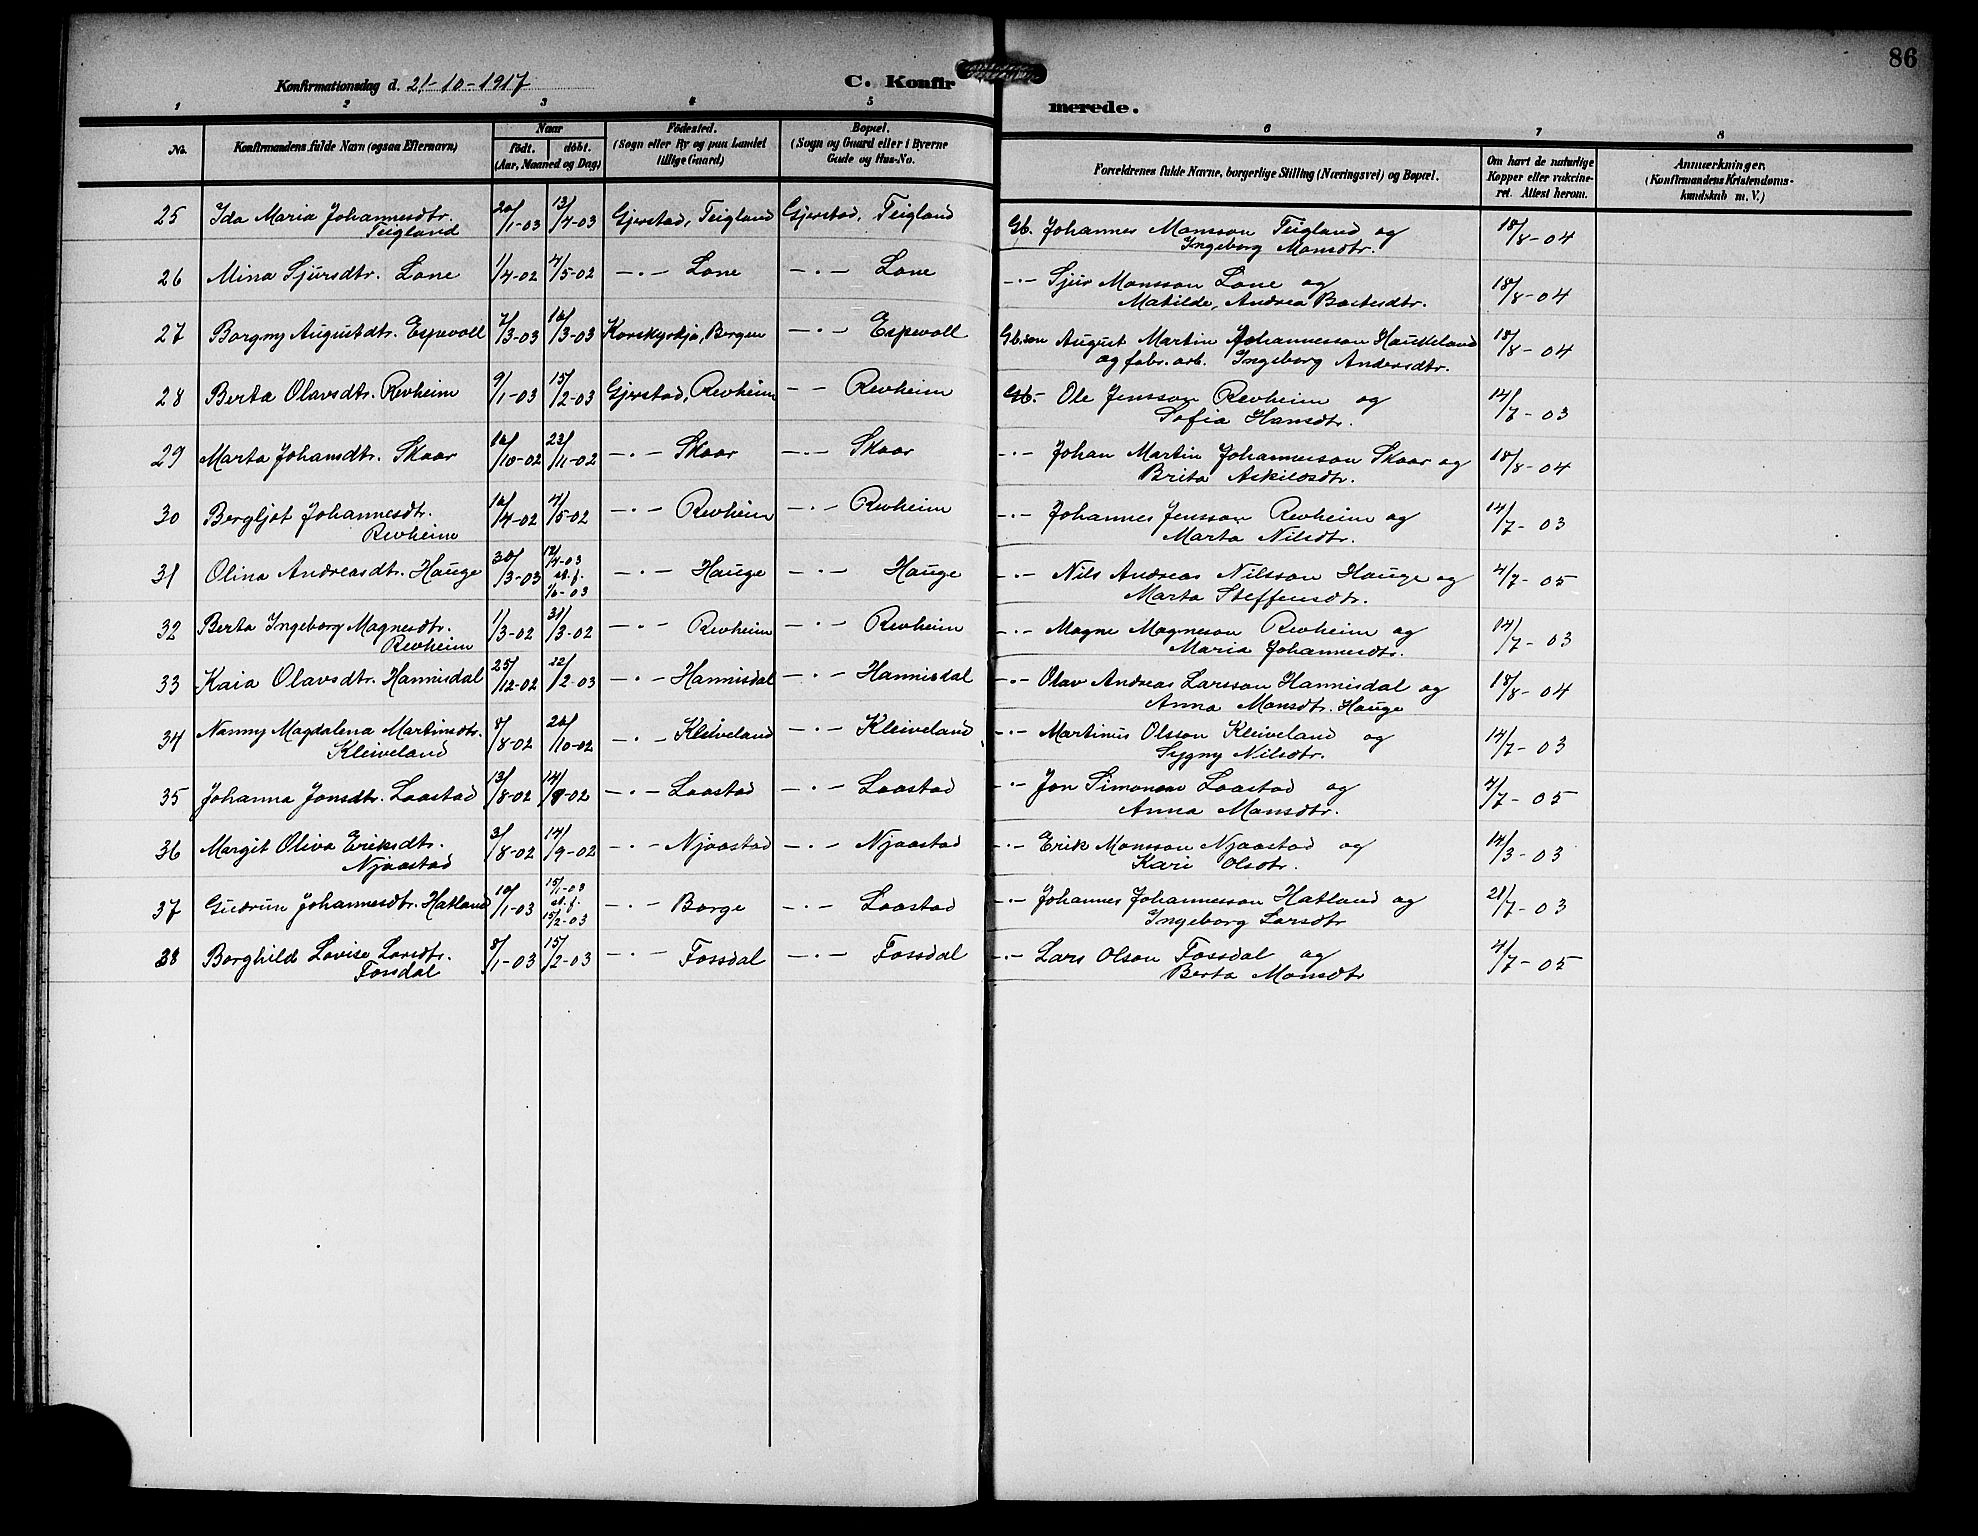 86
Konfirmationsdag d. 21-10-1917
C. Konfir
merede.
1 2 3 4 5 6 7 8
No.
Konfirmandens fulde Navn (ogsaa Efternavn)
Naar
født. døbt.
(Aar, Maaned og Dag)
Födested.
(Sogn eller By og paa Landet
tillige Gaard)
Bopæl.
(Sogn og Gaard eller i Byerne
Gade og Hus-No.
Forældrenes fulde Navne, borgerlige Stilling (Næringsvei) og Bopæl.
Om havt de naturlige
Kopper eller vakcine-
ret. Attest herom.
Anmærkninger.
(Konfirmandens Kristendoms-
kundskab m. V.)
25 Ida Maria Johannesdtr. 20/1-03 13/4-03 Gjerstad, Teigland Gjerstad, Teigland Gb. Johannes Monsson Teigland og 18/8-04
Teigland Ingeborg Monsdtr.
26 Mina Sjursdtr. Lone 1/4-02 4/5-02 -·- Lone -·- Lone -·- Sjur Monsson Lone og 18/8-04
Matilde, Andrea
27 Borgny Augustdtr. Espevoll 7/3-03 16/3-03 Korskyrkja, Bergen -·- Espevoll Gb.søn August Martin Johannesson Haukeland 18/8-04
og fabr. arb. Ingeborg Andersdtr.
28 Berta Olavsdtr. Revheim 9/1-03 15/2-03 Gjerstad, Revheim -- Revheim Gb- Ole Jensson Revheim og 14/7-03
Sofia Hansdtr.
29 Marta Johansdtr. Skaar 16/10-02 23/11-02 -·- Skaar -·- Skaar -·- Johan Martin Johannesson Skaar og 18/8-04
Brita Askilosdtr.
30 Bergljot Johannesdtr. 16/4-02 4/5-02 -·- Revheim -·- Revheim -·- Johannes Jensson Revheim og 14/7-03
Revheim Marta Nilsdtr.
31 Olina Andreasdtr. Hauge 30/3-03 12/4-03 st. f. 1/6-03 -·- Hauge -·- Hauge -·- Nils Andreas Nilsson Hauge og 4/7-05
Marta Steffensdtr.
32 Berta Ingeborg Magnesdtr. 1/3-02 31/3-02 -·- Revheim -·- Revheim -·- Magne Magneson Revheim og 14/7-03
Revheim Maria Johannesdtr.
33 Kaia Olavsdtr. Hannisdal 25/12-02 22/2-03 -·- Hannisdal -·- Hannisdal -·- Olav Andreas Larsson Hannisdal og 18/8-04
Anna Monsdtr. Hauge
34 Nanny Magdalena Martinsdtr. 8/8-02 26/10-02 -·- Kleiveland -·- Kleiveland -·- Martinus Olsson Kleiveland og 14/7-03
Kleiveland Sygny Nilsdtr.
35 Johanna Jonsdtr. Laastad 13/8-02 14/9-02 -·- Laastad -·- Laastad -·- Jon Simonson Laastad og 4/7-05
Anna Monsdtr.
36 Margit Oliva Eriksdtr. 3/8-02 14/9-02 -·- Njaastad -·- Njaastad -·- Erik Monsson Njaastad og 14/3-03
Njaastad Kari Olsdtr.
37 Gudrun Johannesdtr. Hatland 10/1-03 15/1-03 st. f. 15/2-03 -·- Borge -·- Laastad -·- Johannes Johannesson Hatland og 21/7-03
Ingeborg Larsdtr
38 Borghild Lovise Larsdtr. 8/1-03 15/2-03 -·- Fossdal -·- Fossdal -·- Lars Olson Fossdal og 4/7-05
Fossdal Berta Monsdtr